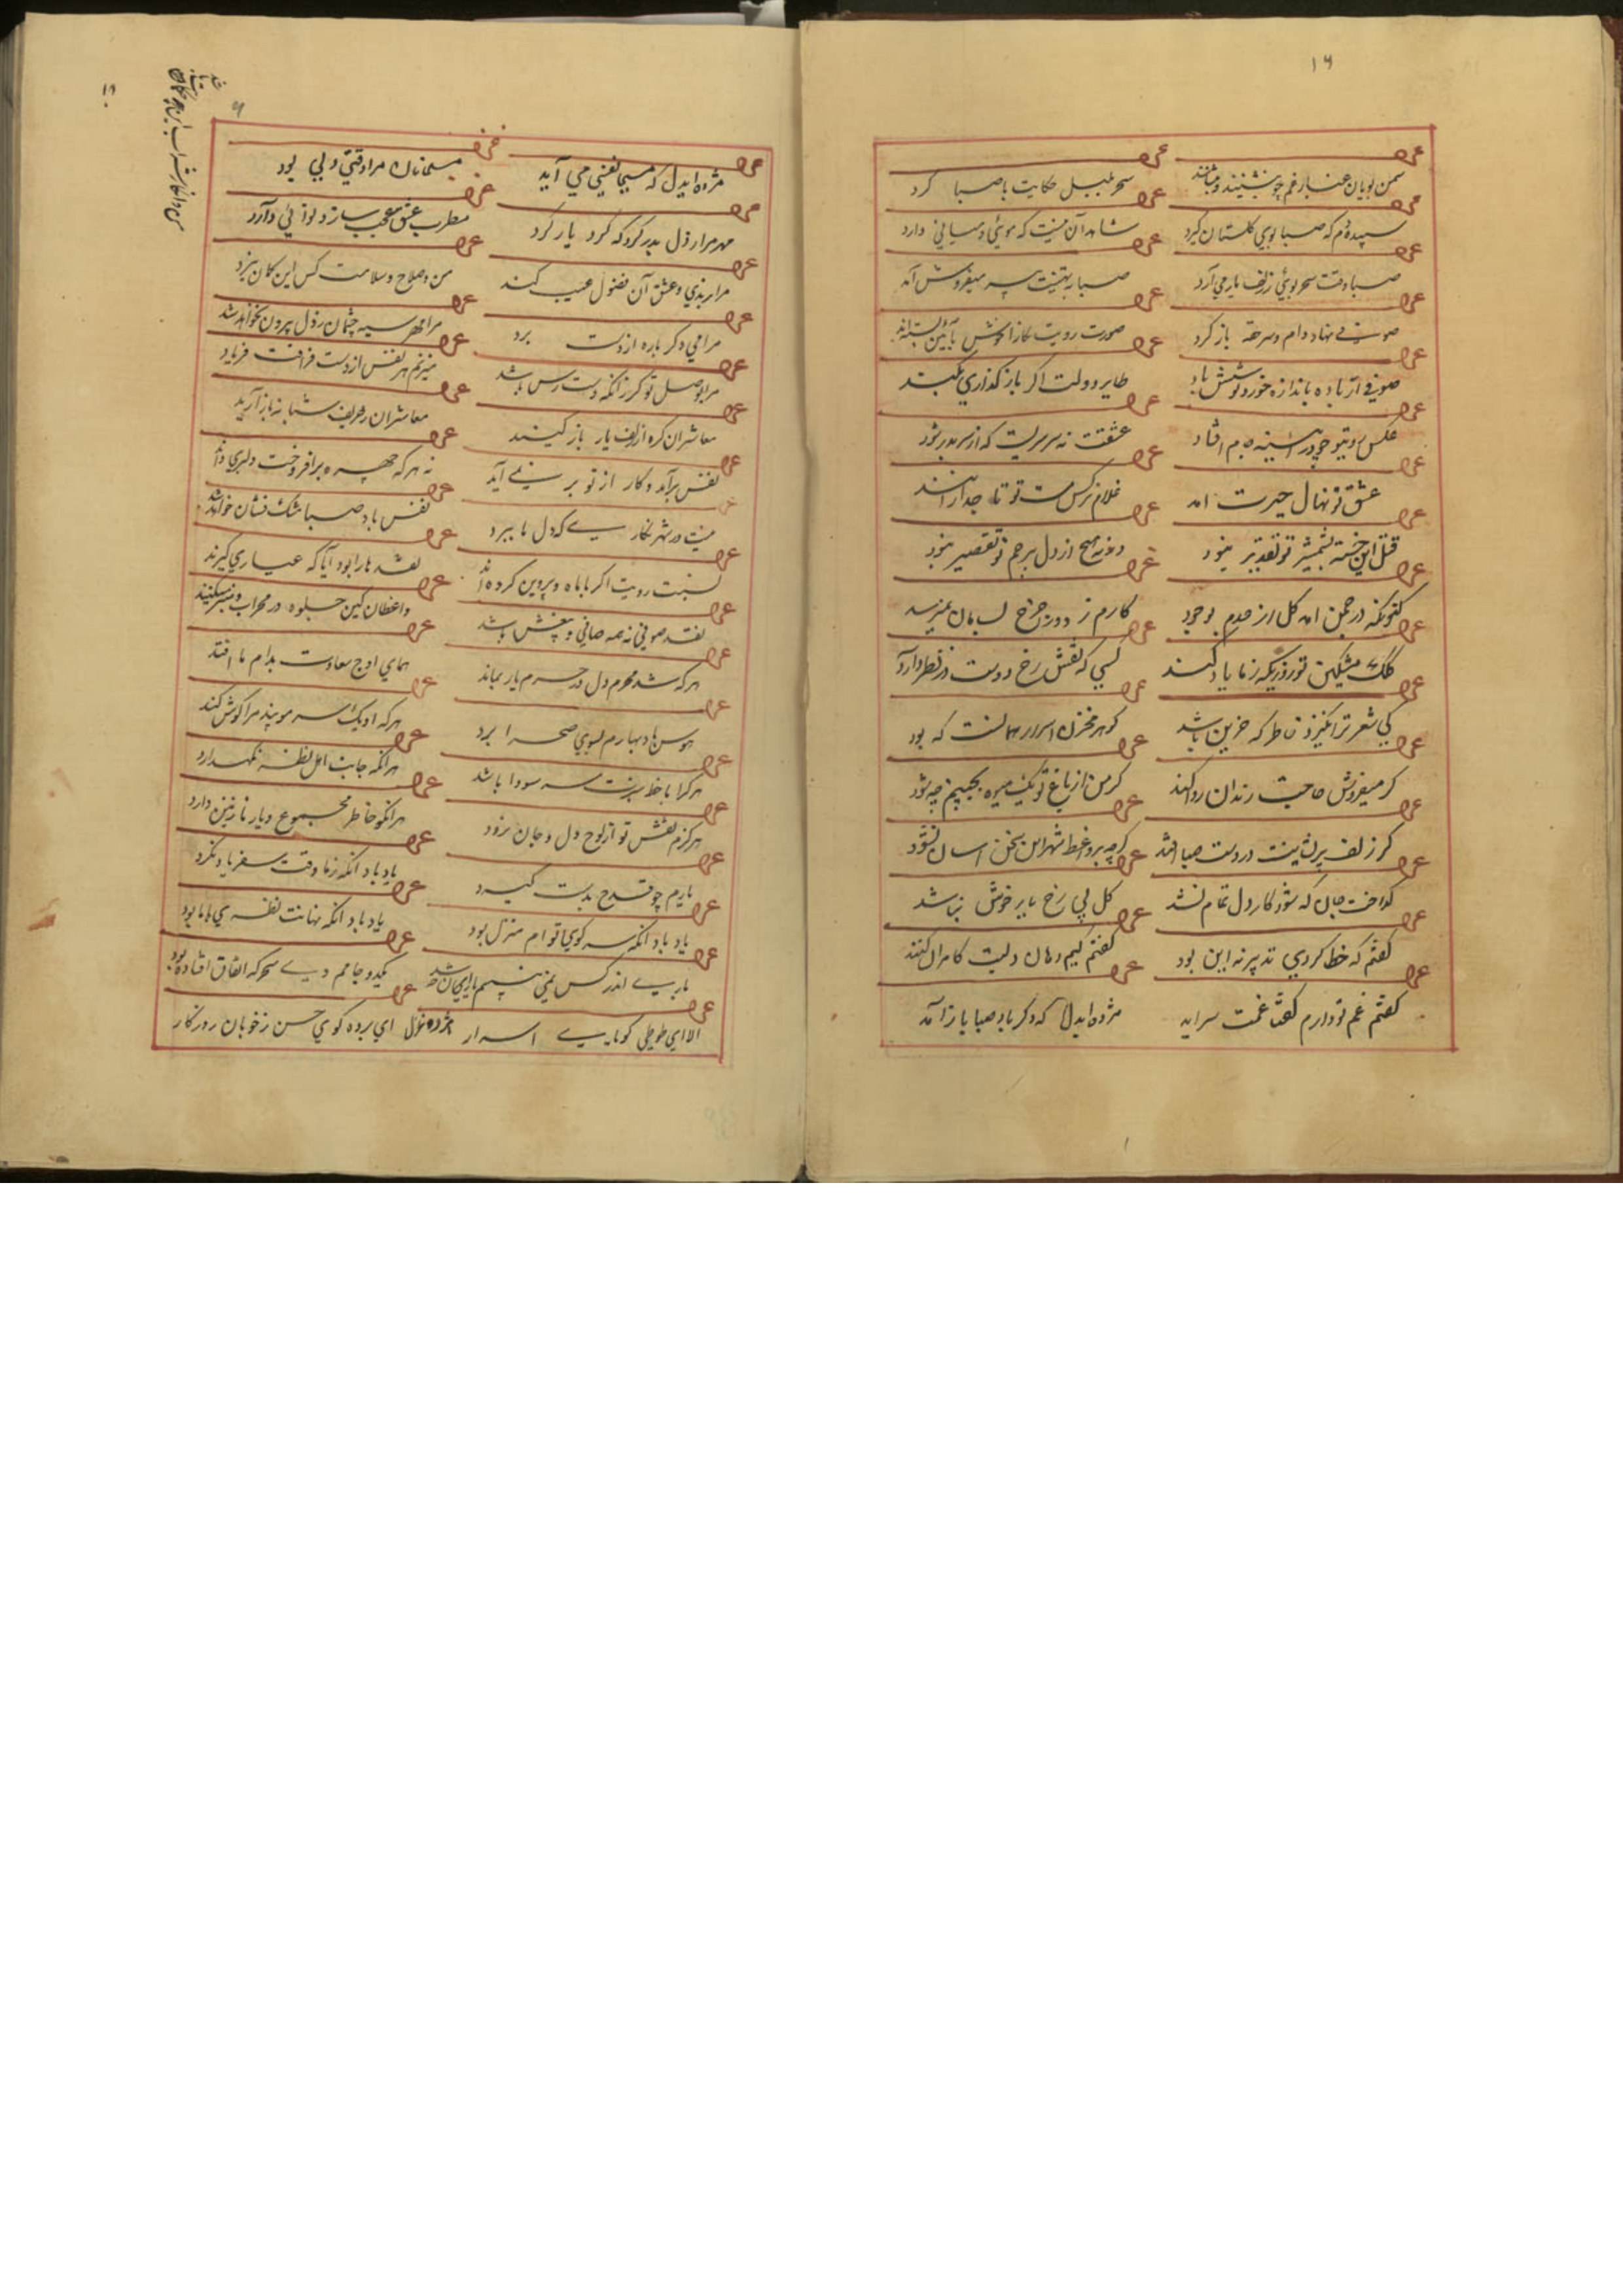 ۱۶
سمن بویان غبار غم چو بنشینند بنشانند
سحر بلبل حکایت با صبا کرد
سپیده دم که صبا بوی کلستان کیرد
شاهد آن نیست که موئی و میانی دارد
صبا وقت سحر بوئی ز زلف یار می آرد
صبا به تهنیت پیر میفروش آمد
صوفی نهاد دام و سر حقه باز کرد
صورت رویت نکارا خوش بآئین بسته اند
صوفی ار باده باندازه خورد نوشش باد
طایر دولت اکر باز کذاری بکند
عکس روی تو چو در آینه جام افتاد
عشقت نه سرسریست که از سر بدر شود
عشق تو نهال حیرت امد
غلام نرکس مست تو تاجدارانند
قتل این خسته بشمشیر تو تقدیر نبود
ورنه هیچ از دل بیرحم تو تقصیر نبود
کنونکه در چمن امد کل از عدم بوجود
کارم ز دور چرخ بسامان نمیرسد
کلک مشکین تو روزیکه ز ما یاد کند
کسی که نقش رخ دوست در نظر دارد
کی شعر تر انکیزد خاطر که حزین باشد
کوهر مخزن اسرار همانست که بود
کر میفروش حاجت رندان روا کند
کر من از باغ تو یک میوه بچینم چه شود
کر زلف پریشانت در دست صبا افتد
کرچه بر واعظ شهر این سخن اسان نشود
کداخت جان که شود کار دل تمام نشد
کل بی رخ یار خوش نباشد
کفتم که خطا کردی تدبیر نه این بود
کفتم کیم دهان و لبت کامران کنند
کفتم غم تو دارم کفتا غمت سراید
مژده ایدل که دکر باد صبا باز آمد
مژده ایدل که مسیحا نفسی می آید
مسلمانان مرا وقتی دلی بود
مطرب عشق عجب ساز و نوائی دارد
مرا برندی و عشق آن فضول عیب کند
من و صلاح و سلامت کس این کمان نبرد
مرا می دکر باره از دست برد
مرا مهر سیه چشمان ز دل بیرون نخواهد شد
مرا بوصل تو کر زانکه دست رس باشد
میزنم هر نفس از دست فراقت فریاد
معاشران کره از زلف یار باز کنید
معاشران ز حریف شبانه یاد آرید
نفس برآمد و کار از تو بر نمی آید
نه هر که چهره برافروخت دلبری داند
نیست در شهر نکاری که دل ما ببرد
نفس باد صبا مشک فشان خواهد شد
نسبت رویت اکر با ماه و پروین کرده اند
نقد ها را بود آیا که عیاری کیرند
نقد صوفی نه همه صافی و بیغش باشد
واعظان کین جلوه در محراب و منبر میکنند
هر که شد محرم دل در حرم یار بماند
همای اوج سعادت بدام ما افتد
هوس باد بهارم بسوی صحرا برد
هر که را با خط سبزت سر سودا باشد
هر انکه جانب اهل نظر نکهدارد
هرکزم نقش تو از لوح دل و جان نرود
هر انکو خاطر مجموع و یار نازنین دارد
یارم چو قدح بدست کیرد
یاد باد انکه ز ما وقت سفر یاد نکرد
یاد باد انکه سر کوی توام منزل بود
یاد باد انکه نهانت نظری با ما بود
یکدو جامم دی سحرکه اتفاق افتاده بود
الا ای طوطی کویای اسرار
ای برده کوی حسن ز خوبان روزکار